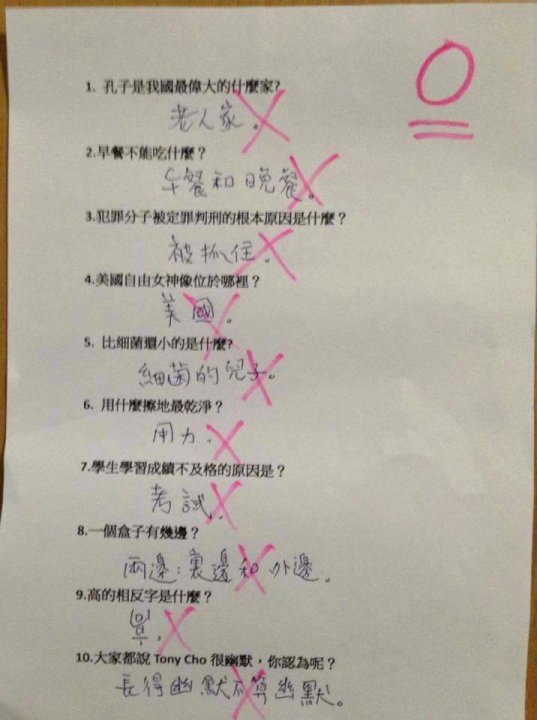 0
1. 孔子是我國最偉大的什麼家?
老人家。
2.早餐不能吃什麼？
午餐和晚餐。
3.犯罪分子被定罪判刑的根本原因是什麼？
被抓住。
4.美國自由女神像位於哪裡？
美國。
5. 比細菌還小的是什麼?
細菌的兒子。
6. 用什麼擦地最乾淨？
用力.
7.學生學習成績不及格的原因是？
考試.
8.一個盒子有幾邊？
兩邊:裏邊和外邊。
9.高的相反字是什麼？
高。
10.大家都說 Tony Cho 很幽默，你認為呢？
長得幽默不算幽默。